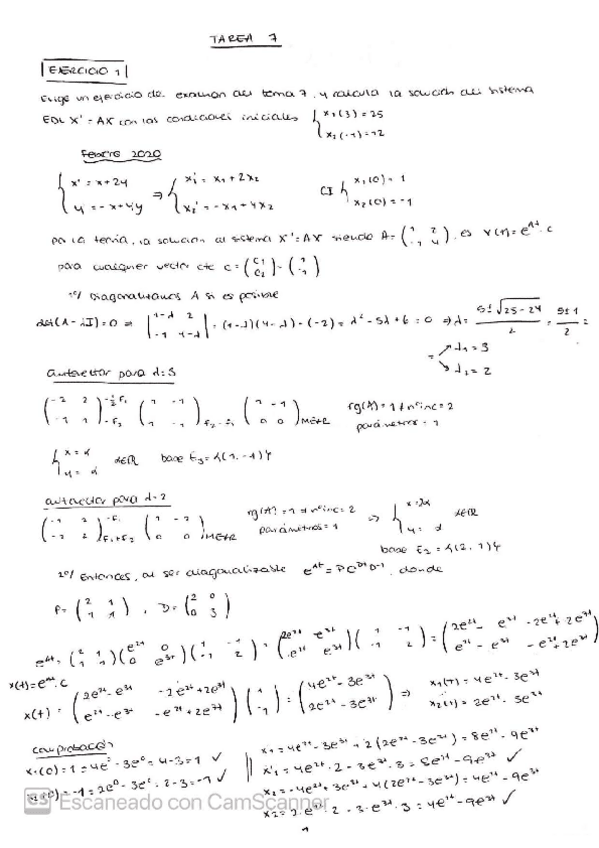 TAREA 7
EJERCICIO 1
Elige un ejercicio de examen del tema 7 y calcula la solución del sistema
EDL X' = AX con las condiciones iniciales { x₁(3) = 25
x₂(-1) = 12
Febrero 2020
{ x' = x + 2y ⇒ { x₁' = x₁ + 2x₂ CI { x₁(0) = 1
y = -x + 4y x₂' = -x₁ + 4x₂ x₂(0) = -1
por la teoría, la solución al sistema X' = AX siendo A = (1 2; -1 4), es X(t) = e^{At}·c
para cualquier vector cte c = (c₁; c₂) = (1; -1)
1º/ Diagonalizamos A si es posible
det(A - λI) = 0 ⇒ |1-λ 2; -1 4-λ| = (1-λ)(4-λ) - (-2) = λ² - 5λ + 6 = 0 ⇒ λ = (5 ± √(25-24))/2 = (5 ± 1)/2 =
= λ₁ = 3
λ₂ = 2
autovector para λ = 3
(-2 2; -1 1) -½F₁ (1 -1; 1 -1) F₂-F₁ (1 -1; 0 0) MEAR rg(A) = 1 ≠ nº inc = 2
parámetros = 1
{ x = α
y = α α∈ℝ base E₃ = {(1, -1)}
autovector para λ = 2
(-1 2; -2 2) -F₁ F₁+F₂ (1 -2; 0 0) MEAR rg(A) = 1 ≠ nº inc = 2
parámetros = 1 ⇒ { x = 2α
y = α α∈ℝ
base E₂ = {(2, 1)}
2º/ Entonces, al ser diagonalizable e^{At} = Pe^{Dt}P⁻¹, donde
P = (2 1; 1 1), D = (2 0; 0 3)
e^{At} = (2 1; 1 1)(e^{2t} 0; 0 e^{3t})(1 -1; -1 2) = (2e^{2t} e^{3t}; e^{2t} e^{3t})(1 -1; -1 2) = (2e^{2t} - e^{3t} -2e^{2t} + 2e^{3t}; e^{2t} - e^{3t} -e^{2t} + 2e^{3t})
x(t) = e^{At}·c
x(t) = (2e^{2t} - e^{3t} -2e^{2t} + 2e^{3t}; e^{2t} - e^{3t} -e^{2t} + 2e^{3t})(1; -1) = (4e^{2t} - 3e^{3t}; 2e^{2t} - 3e^{3t}) ⇒ x₁(t) = 4e^{2t} - 3e^{3t}
x₂(t) = 2e^{2t} - 3e^{3t}
comprobación
x₁(0) = 1 = 4e⁰ - 3e⁰ = 4 - 3 = 1 ✓
x₂(0) = -1 = 2e⁰ - 3e⁰ = 2 - 3 = -1 ✓
x₁ = 4e^{2t} - 3e^{3t} + 2(2e^{2t} - 3e^{3t}) = 8e^{2t} - 9e^{3t}
x'₁ = 4e^{2t}·2 - 3e^{3t}·3 = 8e^{2t} - 9e^{3t} ✓
x₂ = -4e^{2t} + 3e^{3t} + 4(2e^{2t} - 3e^{3t}) = 4e^{2t} - 9e^{3t}
x₂ = 2·e^{2t}·2 - 3·e^{3t}·3 = 4e^{2t} - 9e^{3t} ✓
CS Escaneado con CamScanner
1